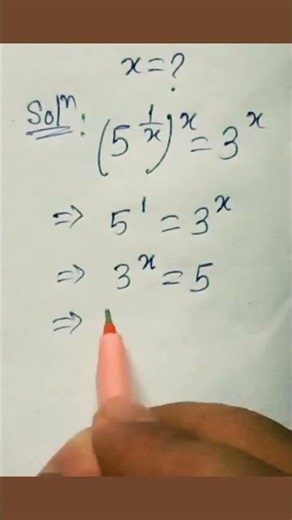 x = ?
Solⁿ: (5^{1/x})^x = 3^x
⇒ 5^1 = 3^x
⇒ 3^x = 5
⇒